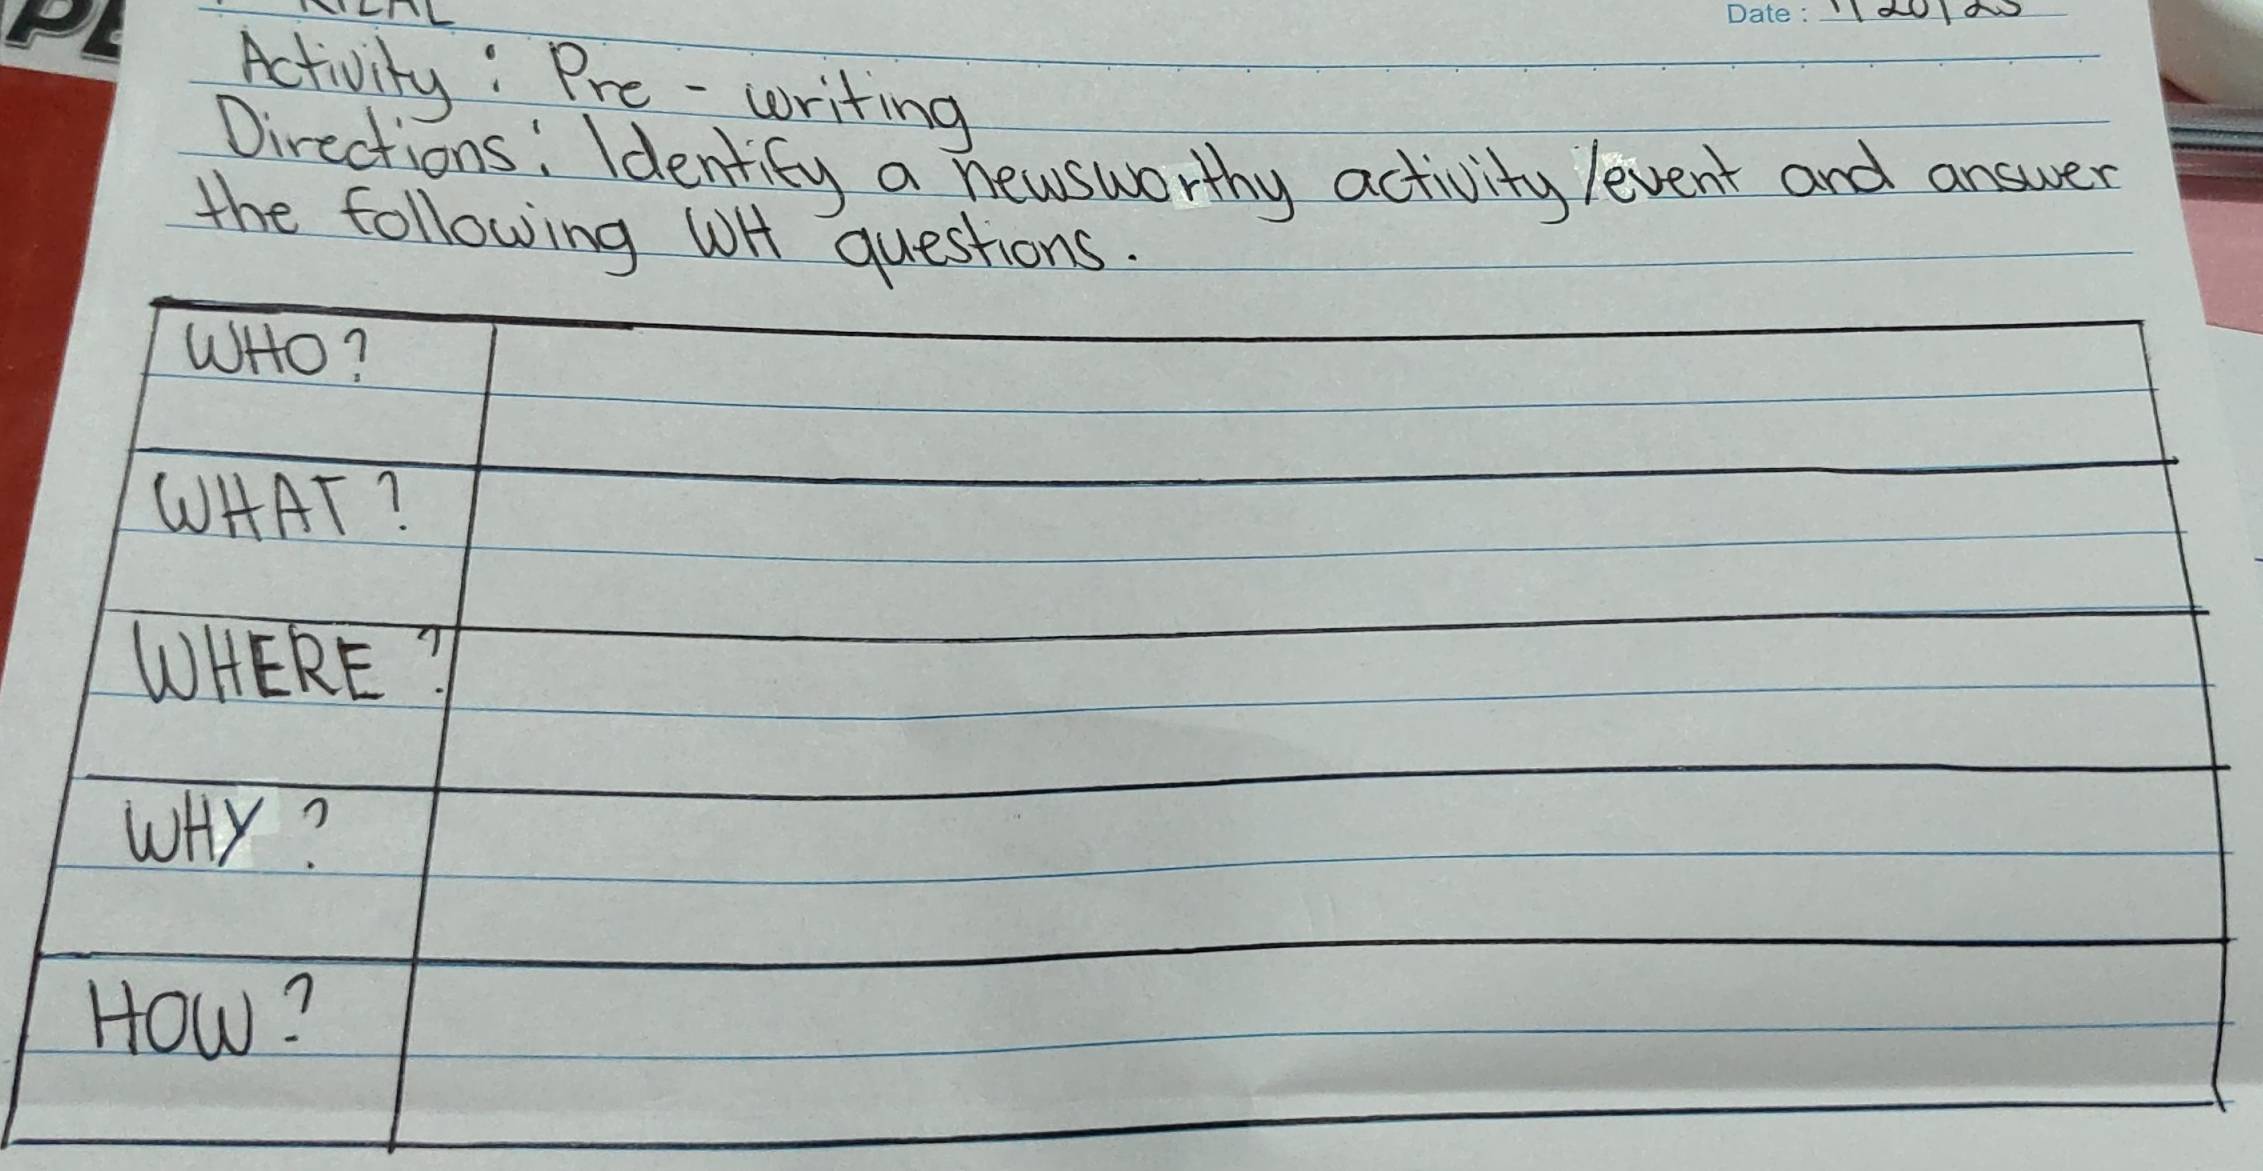 RIZAL
Date : 11/20/25
Activity : Pre - writing
Directions : Identify a newsworthy activity/event and answer
the following WH questions.
WHO?
WHAT?
WHERE?
WHY?
HOW?